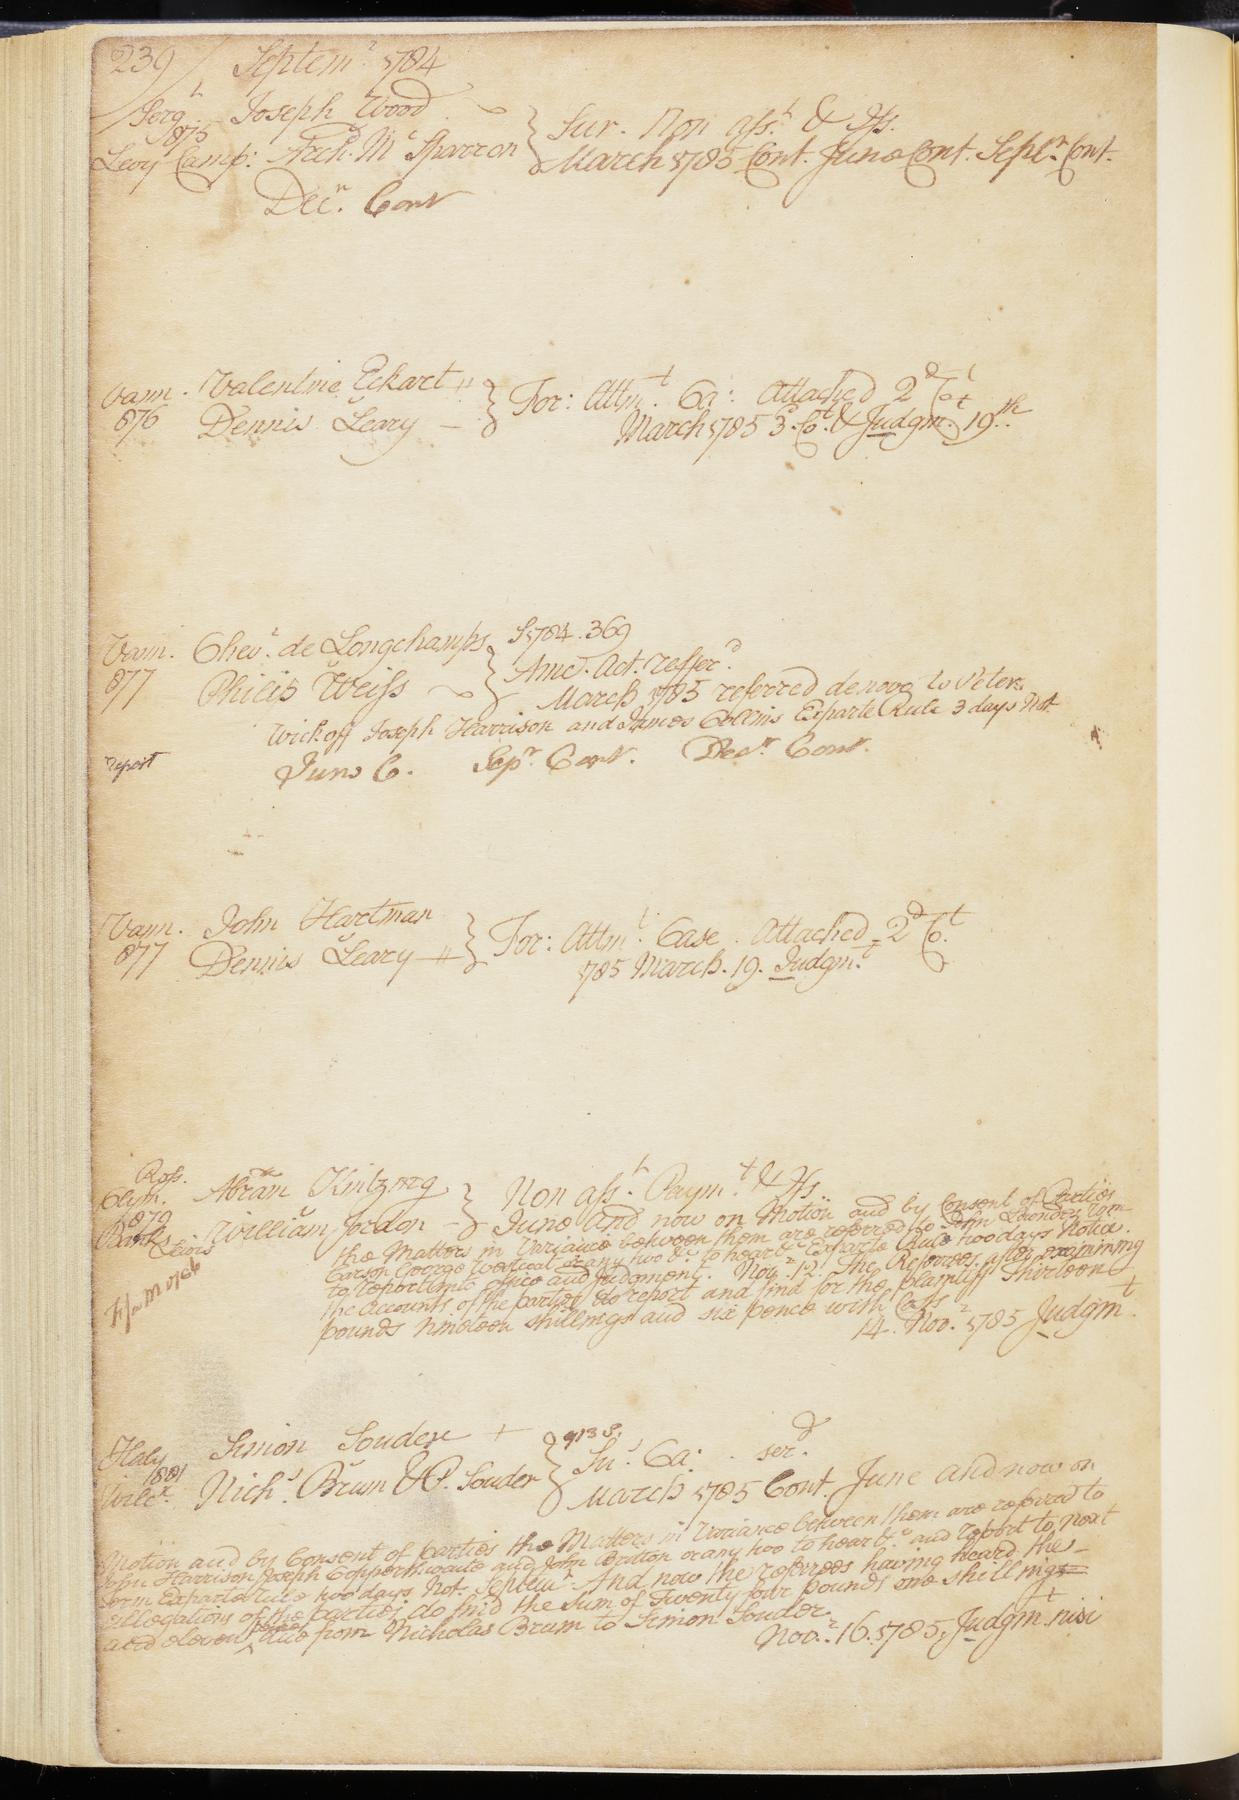 239 / Septem.r 1784
Serg.t Joseph Wood } Sur. Non ass.t & Iss.
875
Levy Camp: Arch.d Mc Sparron } March 1785 Cont. June Cont. Sept.r Cont.
Dec.r Cont
Vann. Valentine Eckart } For: Attm.t Ca: Attached 2.d Co.t
876 Dennis Leary } March 1785 3.d Co.t & Judgm.t 19.th
Vann. Chev.r de Longchamps } S 1784. 369
877 Philip Weiss } Amc. Act. reffer.d
March 1785 referred denovo to Peter
Wickoff Joseph Harrison and James Collins Exparte Rule 3 days Not
report June C. Sep.r Cont. Dec.r Cont.
Vann. John Hartman } For: Attm.t Case. Attached 2.d Co.t
877 Dennis Leary } 1785 March. 19. Judgm.t
Ross.
Clym. Abram Kintzing } Non ass.t Paym.t & Iss.
879
Banks William Jordon } June And now on Motion and by Consent of Parties
Lewis
the Matters in Variance between them are referred to John
Carson George or any two &c to hear &c Exparte Rule two days Notice.
to report into office and Judgment. Nov.r 12. The Referees after examining
the Accounts of the parties do report and find for the plaintiff Thirteen
pounds nineteen shillings and six pence with Costs
14. Nov.r 1785 Judgm.t
Haly Simon Souder + } 913 S.
1881 Su.s Ca: ser.d
Wilc.x Nich.s Brum & P. Souder } March 1785 Cont. June And now on
Motion and by Consent of parties the Matters in Variance between them are referred to
John Harrison Joseph Copperthwaite and John Britton or any two to hear &c and report to next
Term Exparte Rule two days Not. Septem.r And now the referees having heard the
allegations of the parties do find the Sum of Twenty four pounds one shillings
and eleven pence due from Nicholas Brum to Simon Souder.
Nov.r 16. 1785. Judgm.t nisi